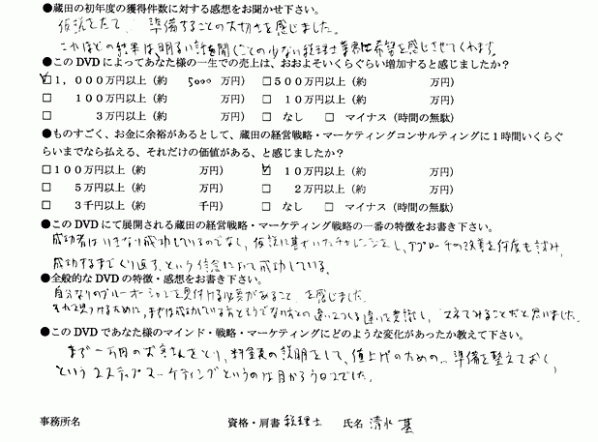 ●蔵田の初年度の獲得件数に対する感想をお聞かせ下さい。
仮説をたて、準備することの大切さを感じました。
これほどの結果は、明るい話を聞くことの少ない税理士業界に希望を感じさせてくれます。
●このDVDによってあなた様の一生での売上は、おおよそいくらぐらい増加すると感じましたか？
☑1,000万円以上（約 5000 万円）□500万円以上（約 万円）
□ 100万円以上（約 万円）□ 10万円以上（約 万円）
□ 3万円以上（約 万円）□ なし □ マイナス（時間の無駄）
●ものすごく、お金に余裕があるとして、蔵田の経営戦略・マーケティングコンサルティングに1時間いくらぐ
らいまでなら払える、それだけの価値がある、と感じましたか？
□100万円以上（約 万円）☑ 10万円以上（約 万円）
□ 5万円以上（約 万円）□ 2万円以上（約 万円）
□ 3千円以上（約 万円）□ なし □ マイナス（時間の無駄）
●このDVDにて展開される蔵田の経営戦略・マーケティング戦略の一番の特徴をお書き下さい。
成功者はいきなり成功しているのでなく、仮説に基づいたチャレンジをし、アプローチの改善を何度も試み、
成功するまでくり返す、という信念によって成功している。
●全般的なDVDの特徴・感想をお書き下さい。
自分なりのブルーオーシャンを見付ける必要があること、を感じました。
それを見つけるために、まずは成功している あと 違い 違いを意識し、マネてみることだと思いました。
●このDVDであなた様のマインド・戦略・マーケティングにどのような変化があったか教えて下さい。
まず一万円のお客さんをとり、料金表の説明をして、値上げのための…準備を整えておく、
という2ステップマーケティングというのは目からウロコでした。
事務所名 資格・肩書 税理士 氏名 清水 基